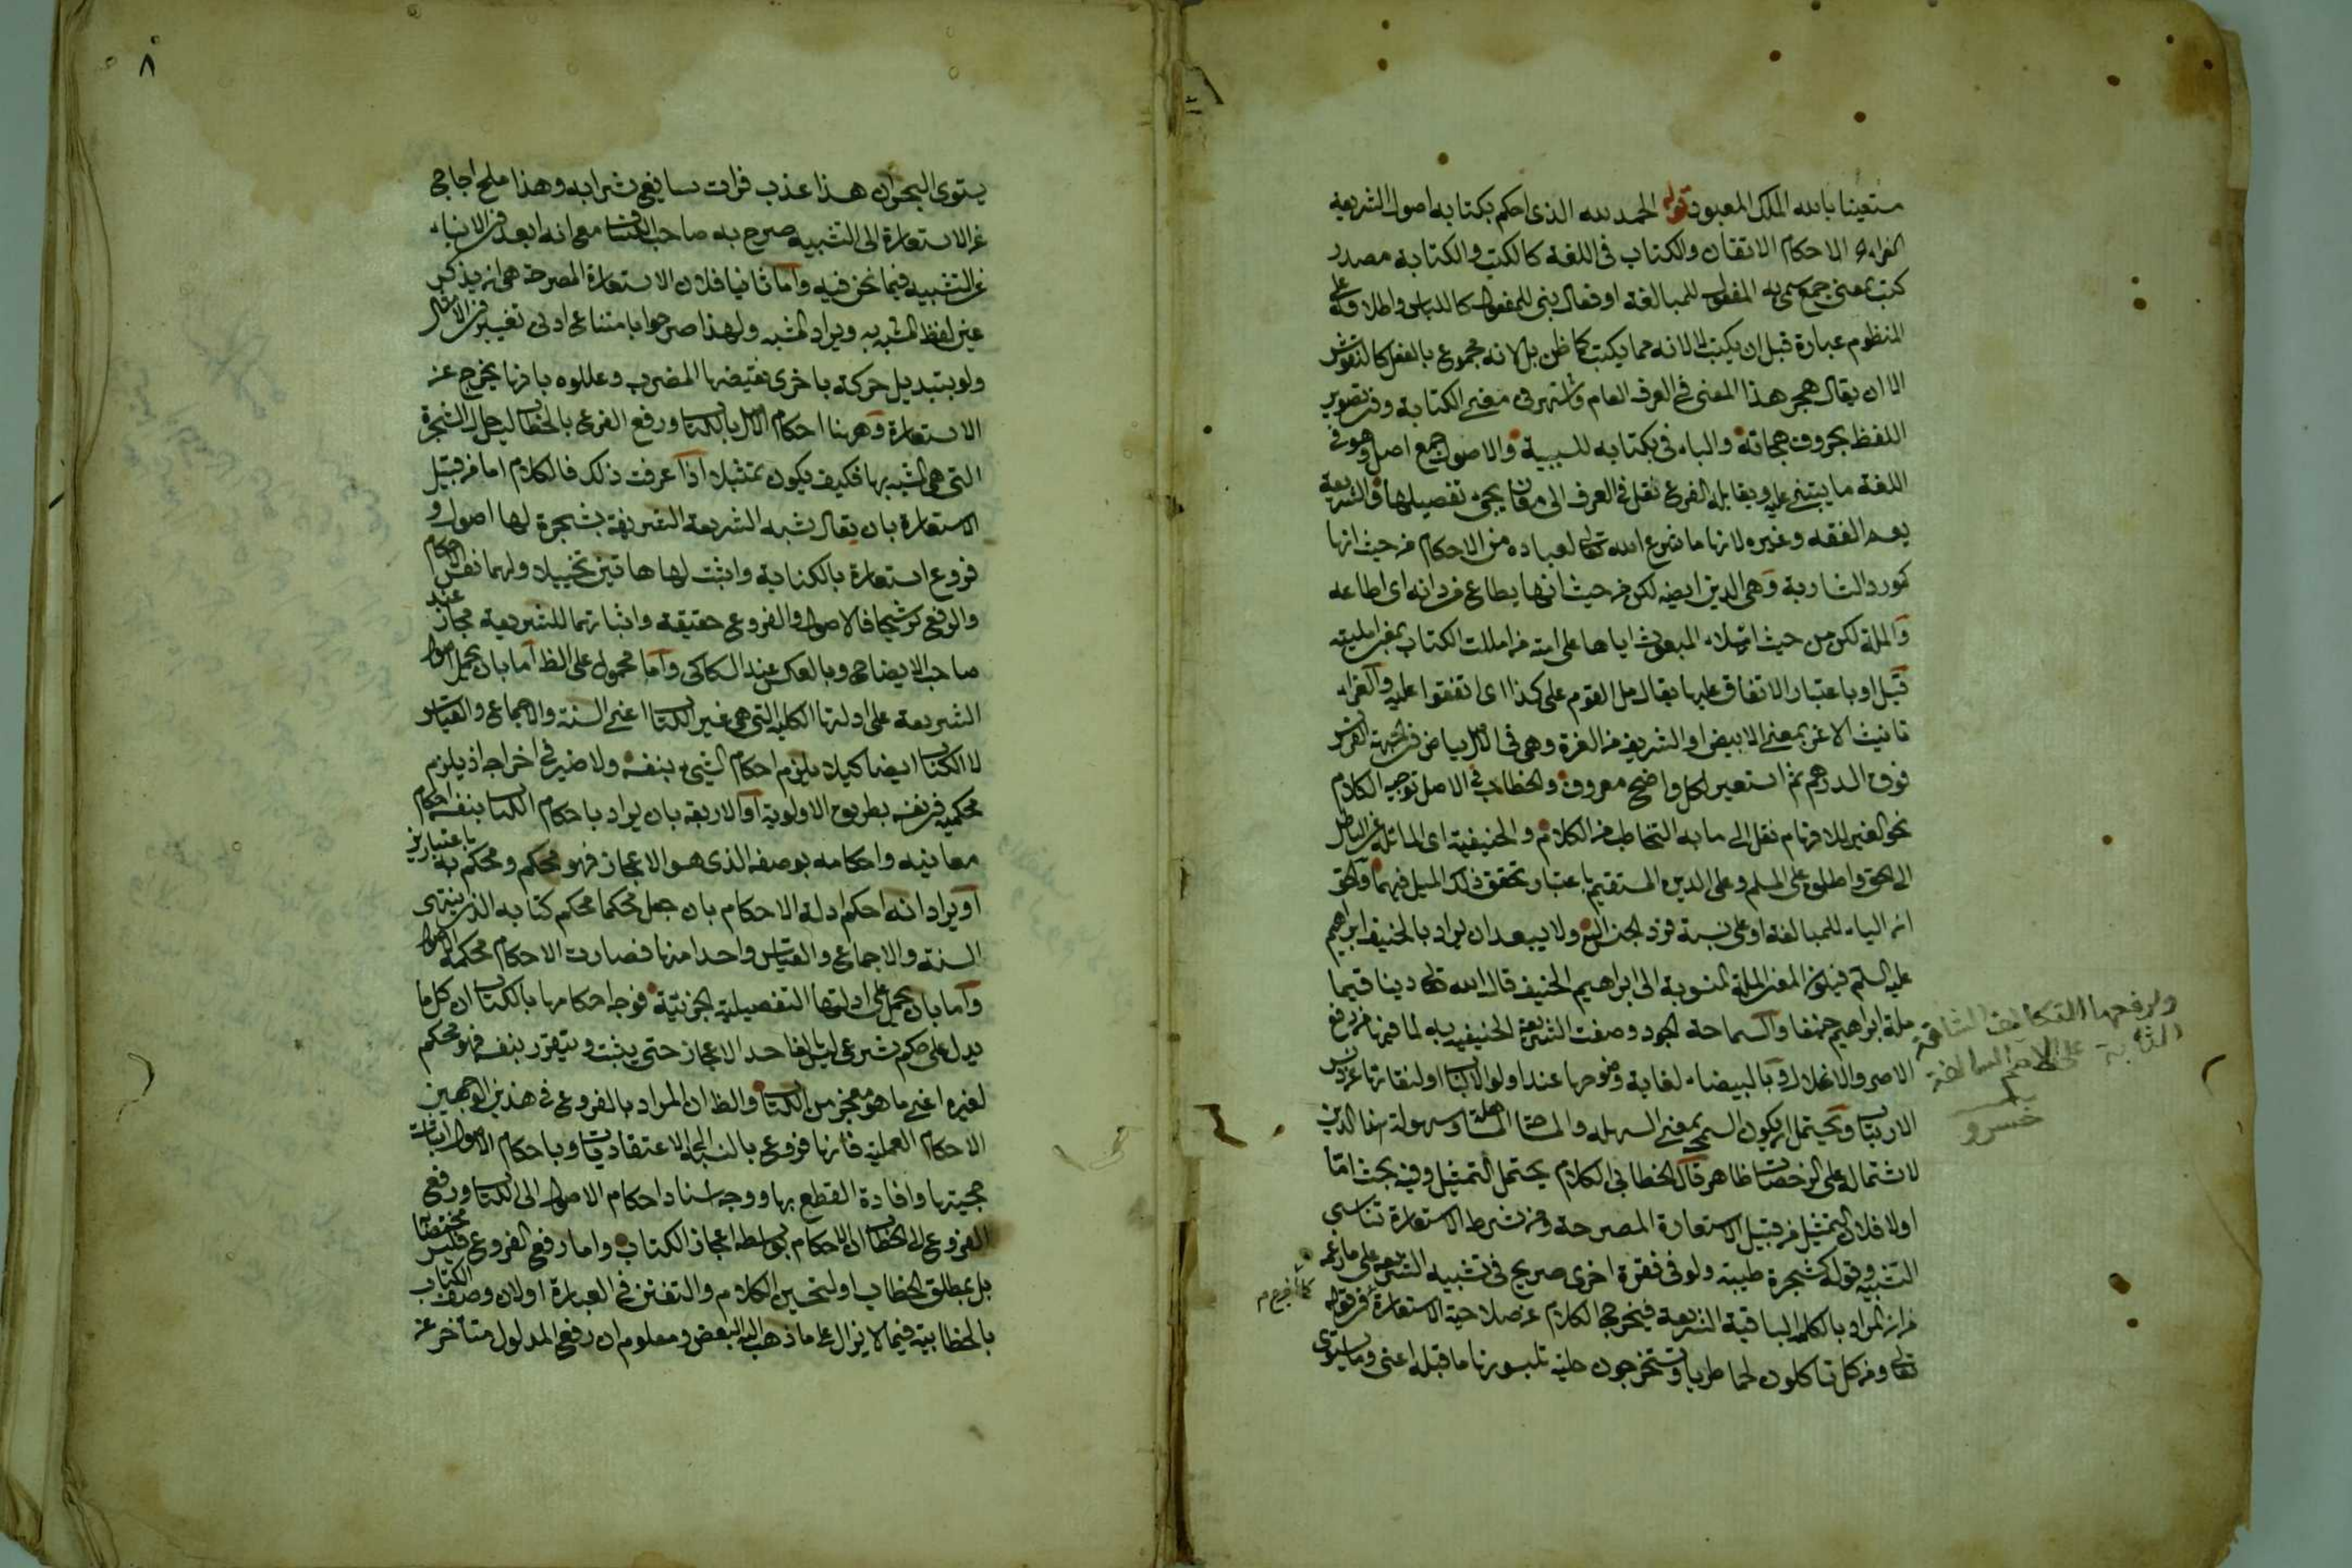 مستعينا بالله الملك المعبود قوله الحمد لله الذى احكم بكتابه اصول الشريعة
الغراء الاحكام الاتقان والكتاب فى اللغة كالكتب والكتابة مصدر
كتب بمعنى جمع سمى به المفعول للمبالغة او فعال بنى للمفعول كاللباس واطلاقه على
المنظوم عبارة قبل ان يكتب لا لانه مما يكتب كما ظن بل لانه مجموع بالفعل كالنقوش
الا ان يقال هجر هذا المعنى فى العرف العام واشتهر فى معنى الكتابة وفسر بتصوير
اللفظ بحروف هجائه والباء فى بكتابه للسببية والاصول جمع اصل وهو فى
اللغة ما يبتنى عليه ويقابله الفرع نقل فى العرف الى معان يجىء تفصيلها والشريعة
يعم الفقه وغيره لانها ما شرع الله تعالى لعباده من الاحكام من حيث انها
كمورد الشاربة وهى الدين ايضا لكن من حيث انها يطاع من دانه اى اطاعه
والملة لكن من حيث املاء المبعوث اياها على امته من امللت الكتاب بمعنى امليته
قيل او باعتبار الاتفاق عليها يقال مل القوم على كذا اى اتفقوا عليه والغراء
تانيث الاغر بمعنى الابيض او الشريف من الغرة وهى فى الاصل بياض فى جبهة الفرس
فوق الدرهم ثم استعير لكل واضح معروف والخطاب فى الاصل توجيه الكلام
نحو الغير للافهام نقل الى ما به التخاطب من الكلام والحنيفية اى المائلة عن الباطل
الى الحق واطلق على المسلم وعلى الدين المستقيم باعتبار تحقق ذلك الميل فيهما والحق
ان الياء للمبالغة او على نسبة فرد الجنس اليه ولا يبعد ان يراد بالحنيف ابراهيم
عليه السلم فيكون المعنى الملة المنسوبة الى ابراهيم الحنيف قال الله تعالى دينا قيما
ملة ابراهيم حنيفا والسماحة الجود وصفت الشريعة الحنيفية به لما فيها من رفع
الاصر والاغلال وبالبيضاء لغاية وضوحها عند اولو الالباب او لنقائها عن دنس
الارتياب ويحتمل ان يكون السمح بمعنى السهلة
لاشتماله على الرخصات ظاهر قال الخطابى الكلام يحتمل التمثيل وفيه بحث اما
اولا فلان التمثيل من قبيل الاستعارة المصرحة ومن شرط الاستعارة تناسى
التشبيه وقوله كشجرة طيبة ولو فى فقرة اخرى صريح فى تشبيه الشريعة على ما زعمه
من ان المراد بالكلم الباقية الشريعة فيخرج الكلام عن صلاحية الاستعارة فى قوله
تعالى ومن كل تاكلون لحما طريا وتستخرجون حلية تلبسونها ما قبله اعنى وما يستوى
ولرفعها التكاليف الشاقة
الثابتة على الامم السالفة
خسرو
٨
يستوى البحران هذا عذب فرات سايغ شرابه وهذا ملح اجاج
عن الاستعارة الى التشبيه صرح به صاحب الكشاف مع انه ابعد فى الانباء
عن التشبيه فيما نحن فيه واما ثانيا فلان الاستعارة المصرحة هى ان يذكر
عين لفظ المشبه به ويراد المشبه ولهذا صرحوا بامتناع ادنى تغيير فى الامثال
ولو بتبديل حركة باخرى يقتضها المضرب وعللوه بانها يخرج عن
الاستعارة وههنا احكام الاصل بالكتاب ورفع الفرع بالخطاب ليس حال الشجرة
التى هى المشبه بها فكيف يكون تمثيلا اذا عرفت ذلك فالكلام اما من قبيل
الاستعارة بان يقال شبه الشريعة الشريفة بشجرة لها اصول و
فروع استعارة بالكناية واثبت لها هاتين تخييلا ولهما نفس الاحكام
والرفع ترشيحا فالاصول والفروع حقيقة واثباتهما للشريعة مجاز عند
صاحب الايضاح وبالعكس عند السكاكى واما محمول على الظ اما بان يحمل اصول
الشريعة على ادلتها الكلية التى هى غير الكتاب اعنى السنة والاجماع والقياس
لا الكتاب ايضا كيلا يلزم احكام الشىء بنفسه ولا ضير فى اخراجه اذ يلزم
محكمية من نفسه بطريق الاولوية او الاربعة بان يراد باحكام الكتاب بنفسه احكام
معانيه واحكامه بوصفه الذى هو الاعجاز فهو محكم ومحكم به باعتبارين
او يراد انه احكم ادلة الاحكام بان جعل محكما محكم كتابه الذى ينتهى
السنة والاجماع والقياس واحدا منها فصارت الاحكام محكمة الاصول
واما بان يحمل على ادلتها التفصيلية الجزئية فوجه احكامها بالكتاب ان كل ما
يدل على حكم شرعى ليس بالغا حد الاعجاز حتى يثبت ويتقرر بنفسه فهو محكم
لغيره اعنى ما هو معجز من الكتاب والظ ان المراد بالفروع فى هذين الوجهين
الاحكام العملية فانها فروع بالنسبة الى الاعتقاديات وباحكام الاصول اثبات
حجيتها وافادة القطع بها ووجه اسناد احكام الاصول الى الكتاب ورفع
الفروع الى الخطاب ان الاحكام بواسطة اعجاز الكتاب واما رفع الفروع فليس مختصا
بل بمطلق الخطاب او لتحسين الكلام والتفنن فى العبارة او لان وصف الكتاب
بالخطابية فيما لا يزال على ما ذهب اليه البعض ومعلوم ان رفع المدلول متاخر عن